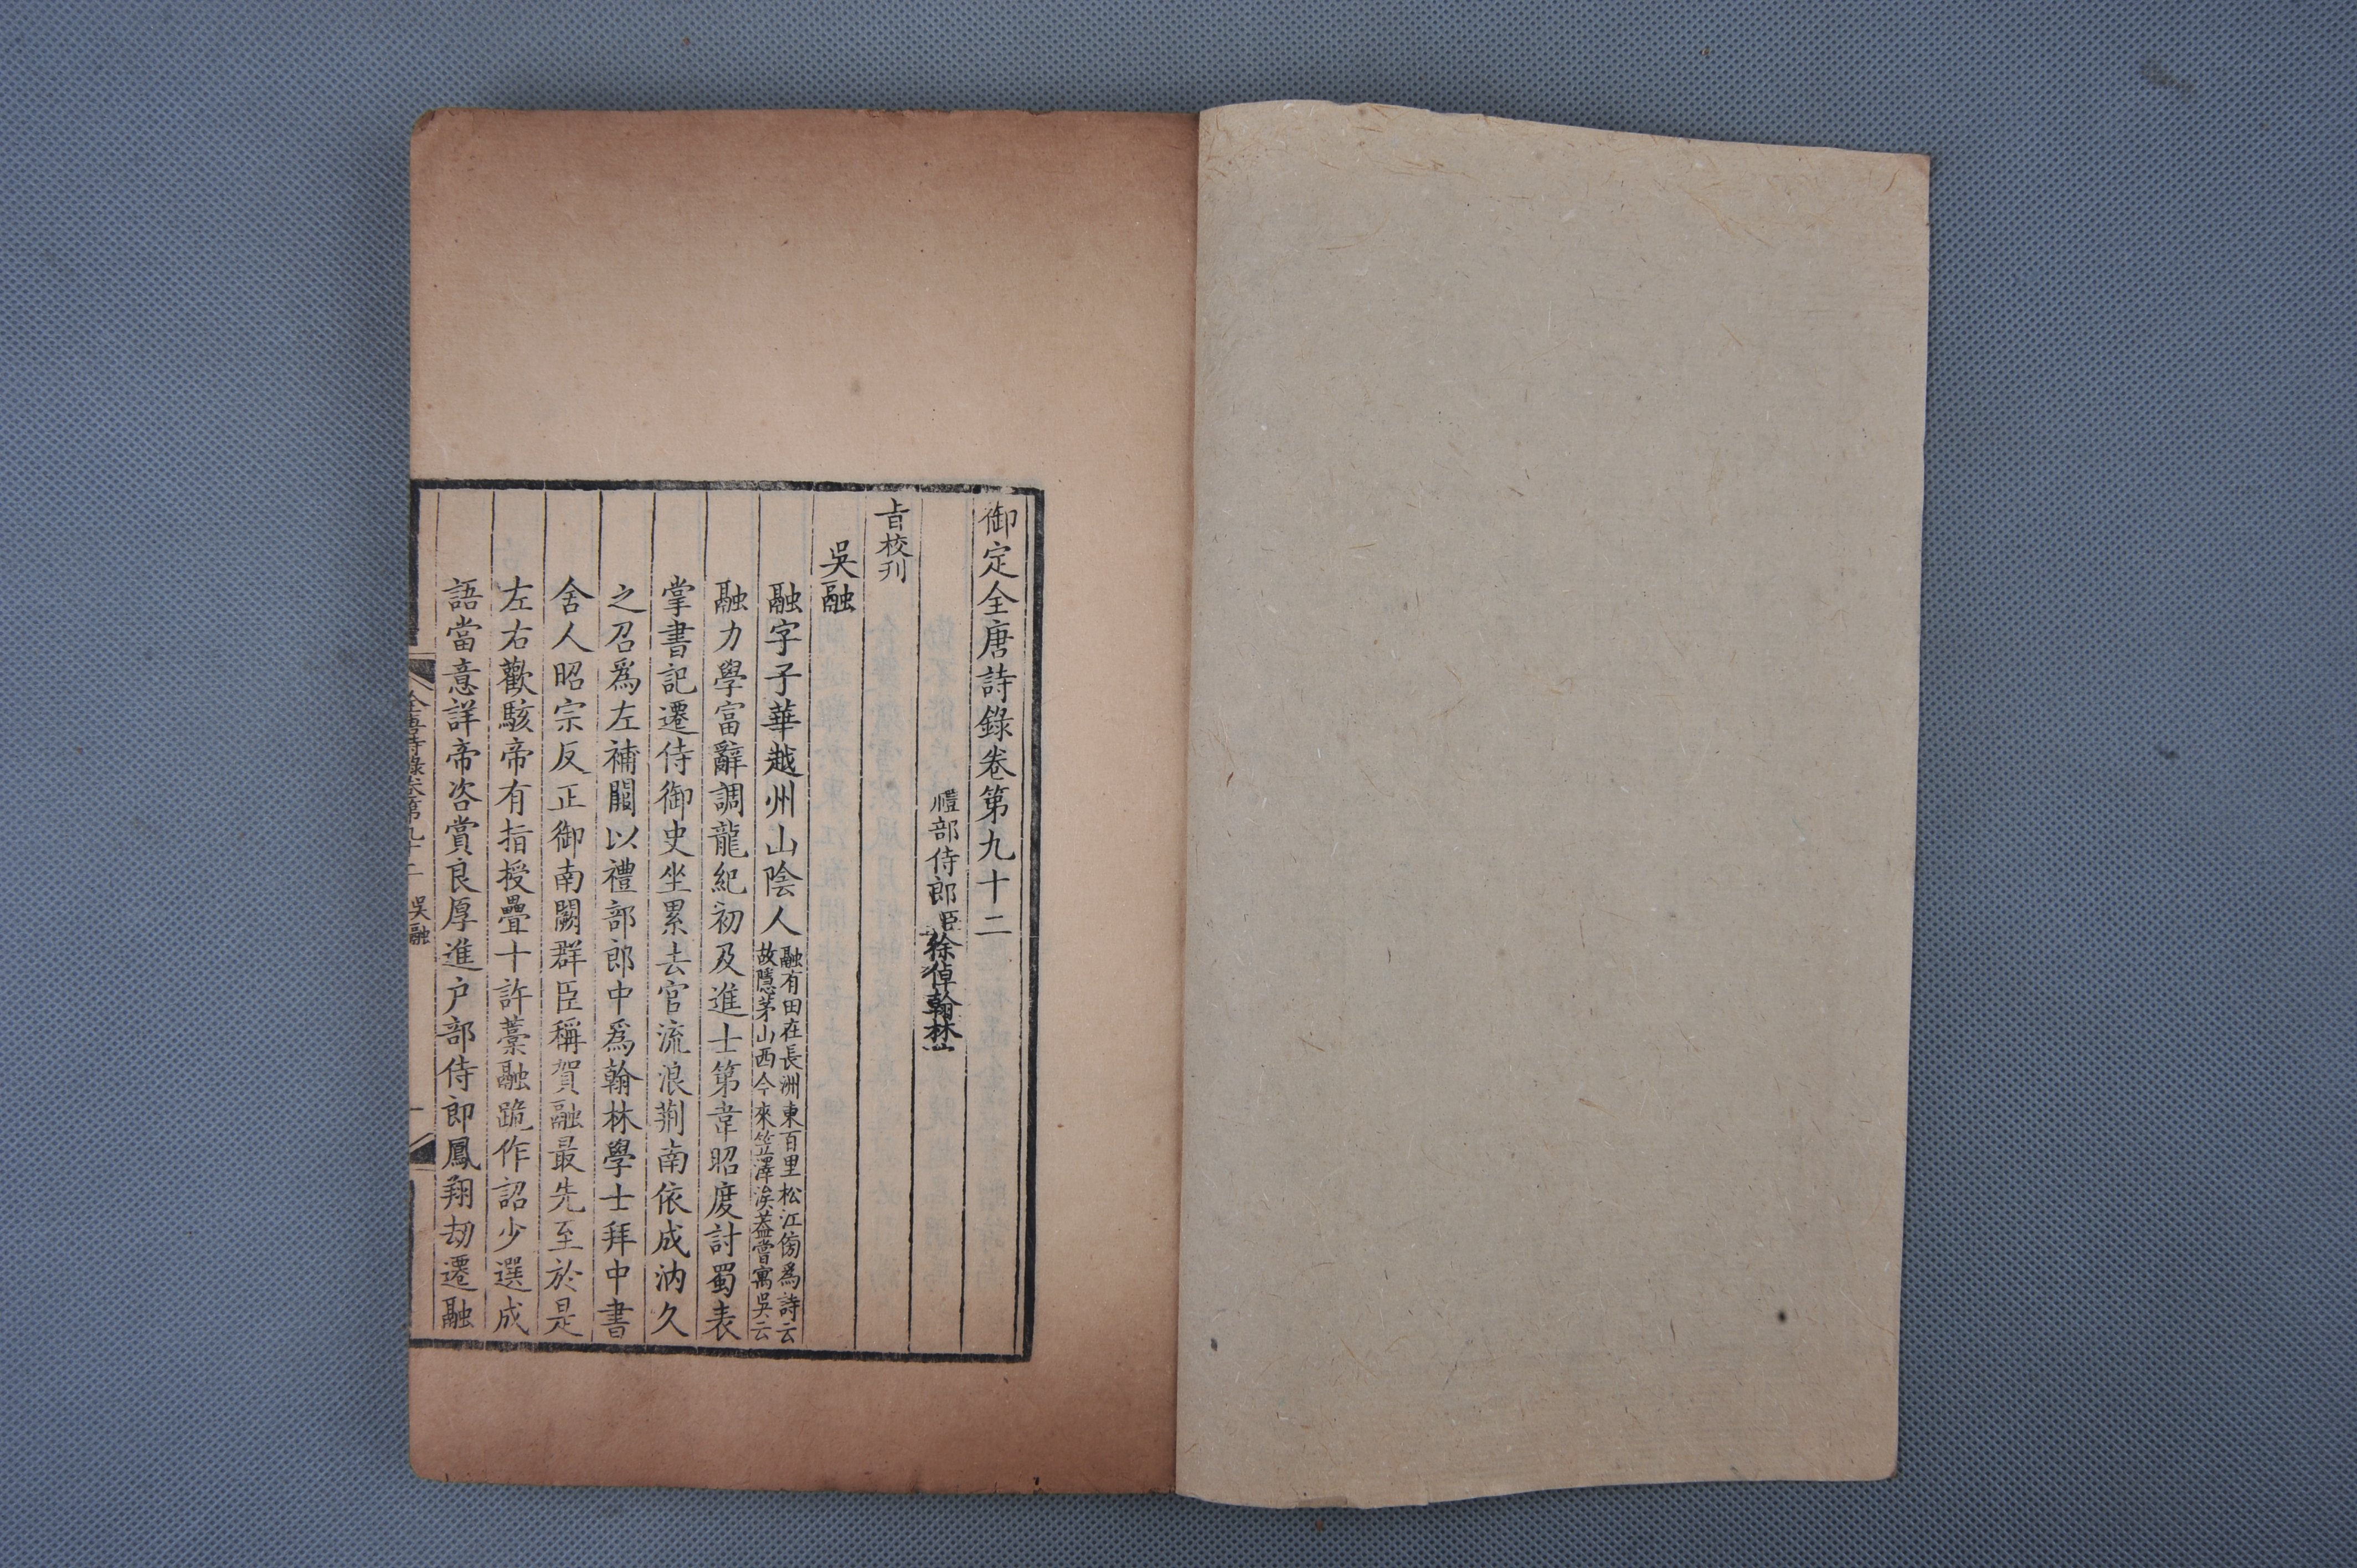 御定全唐詩錄卷第九十二
禮部侍郎臣徐倬翰林
旨校刊
吳融
融字子華越州山陰人融有田在長洲東百里松江傍爲詩云故隱茅山西今來笠澤涘葢嘗寓吳云
融力學富辭調龍紀初及進士第韋昭度討蜀表
掌書記遷侍御史坐累去官流浪荆南依成汭久
之召爲左補闕以禮部郎中爲翰林學士拜中書
舍人昭宗反正御南闕群臣稱賀融最先至於是
左右歡駭帝有指授疊十許藁融跪作詔少選成
語當意詳帝咨賞良厚進户部侍郎鳳翔刼遷融
全唐詩錄卷第九十二 吳融 一